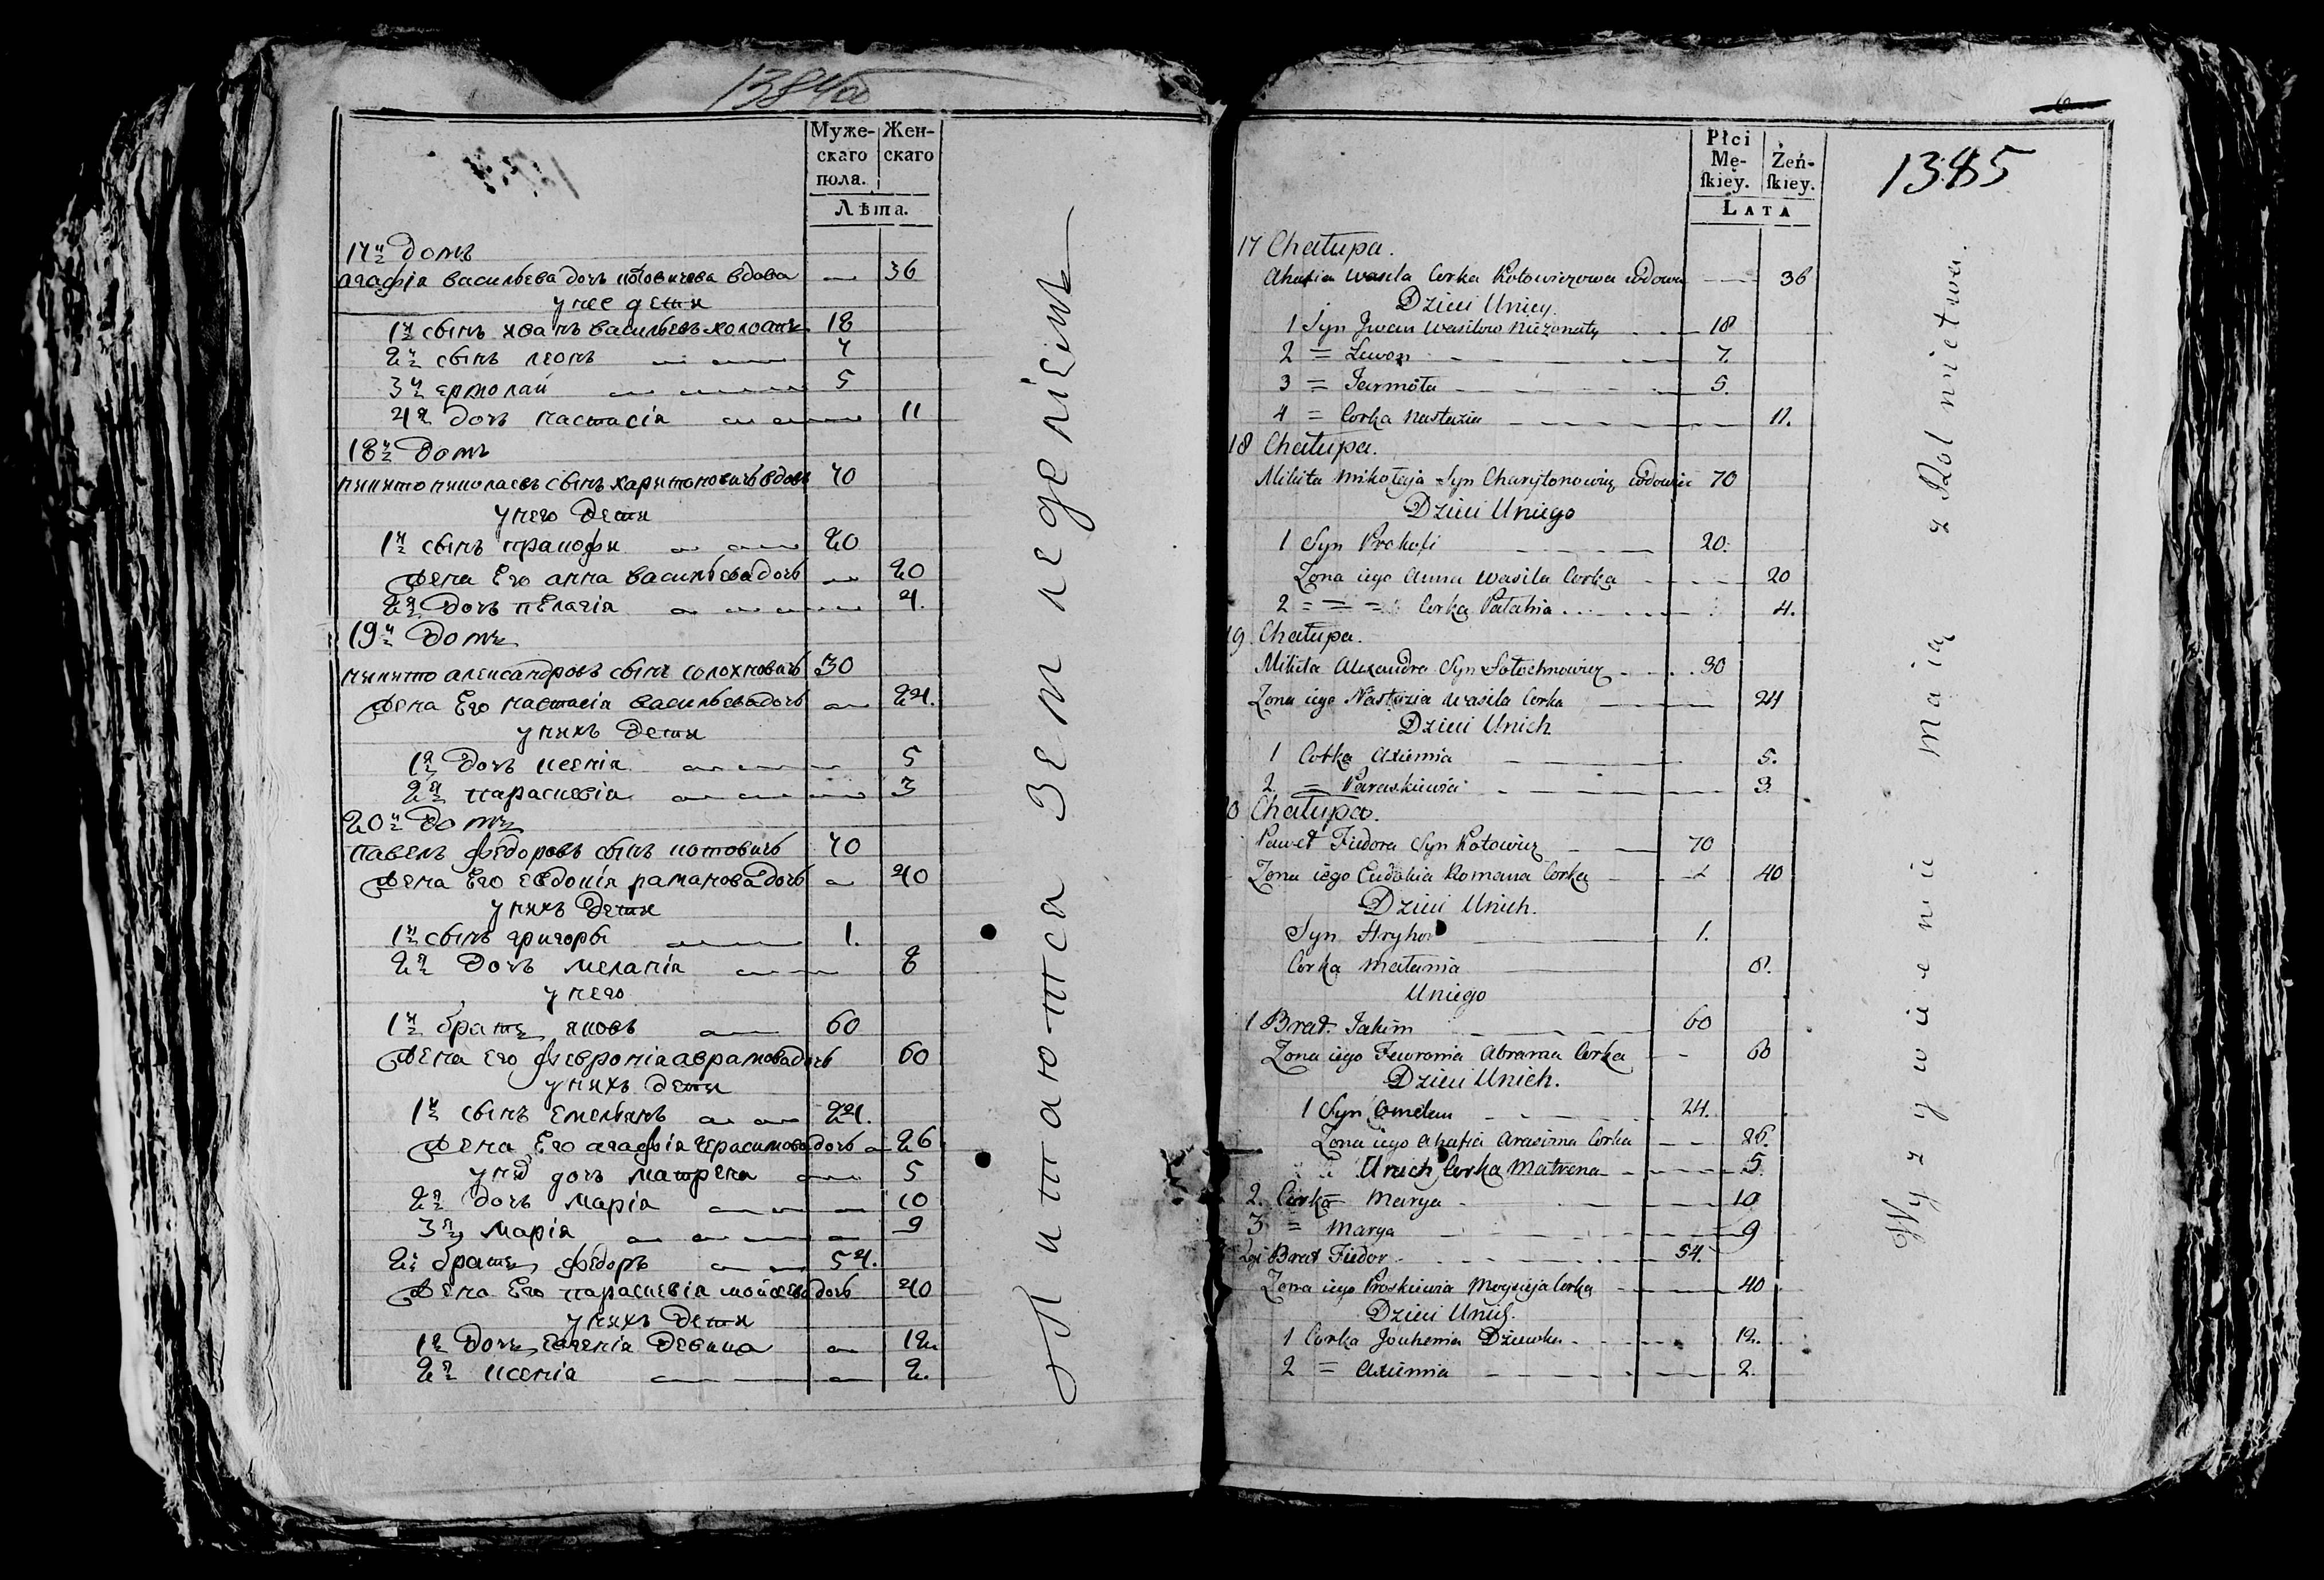 1384об
Муже-
скаго
пола.
Жен-
скаго
Лѣта.
17й Домъ
агафія васильева дочь котовичева вдова — 36
у нее дети
1й сынъ иванъ васильевъ холоатъ 18
2й сынъ леонъ 7
3й ермолай 5
4я дочь настасія 11
18й Домъ
никито николаевъ сынъ харитоновичъ вдовъ 70
у него дети
1й сынъ пракофи 20
жена Его анна васильева дочь — 20
2я дочь пелагія 4.
19й Домъ
никито александровъ сынъ солохновичъ 30
жена Его настасія васильева дочь — 24.
у нихъ дети
1я дочь ксенія 5
2я параскевія 3
20й Домъ
павелъ федоровъ сынъ котовичъ 70
жена Его евдокія раманова дочь — 40
у нихъ дети
1й сынъ григоры 1.
2я дочь меланія 8
у него
1й братъ яковъ 60
жена его февронія аврамова дочь 60
у нихъ дети
1й сынъ емельянъ 24.
жена Его агафія герасимова дочь — 26
у нихъ дочь матрена 5
2я дочь марія 10
3я марія 9
2й братъ федоръ 54.
жена Его параскевія мойсева дочь 40
у нихъ дети
1я дочь евгенія девица — 12.
2я ксенія 2.
Питаются земледеліемъ
6
1385
Płci
Mę-
ſkiey.
Żeń-
ſkiey.
LATA
17 Chatupa.
Ahafia Wasila Corka Kotowiczowa wdowa — 36
Dzieci Uniey.
1 Syn Jwan Wasilow Niezonaty 18
2 = Lewon 7.
3 = Jarmoła 5.
4 = Corka Nastazia 11.
18 Chatupa.
Mikita Mikołaja Syn Charytonowicz wdowiec 70
Dzieci Uniego
1 Syn Prokofi 20.
Zona iego Anna Wasila Corka 20
2 = = = Corka Pałahia 4.
19 Chatupa.
Mikita Alexandra Syn Sołochnowicz 30
Zona iego Nastazia Wasila Corka 24
Dzieci Unich
1 Corka Axienia 5.
2. = Paraskiewia 3.
20 Chatupa.
Paweł Fiedora Syn Kotowicz 70
Zona iego Eudokia Romana Corka 40
Dzieci Unich.
Syn Hryhor 1.
Corka Małania 8.
Uniego
1 Brat Jakim 60
Zona iego Fewronia Abrama Corka 60
Dzieci Unich.
1 Syn Omelan 24.
Zona iego Ahafia Arasima Corka 26.
Unich Corka Matrena 5.
2. Corka = Marya 10
3 = Marya 9
2gi Brat Fiedor 54.
Zona iego Proskiewia Moysieja Corka 40
Dzieci Unich.
1 Corka Jouhenia Dziewka 12.
2 = Axienia 2.
Wyzywienie maią z Rolnictwa.